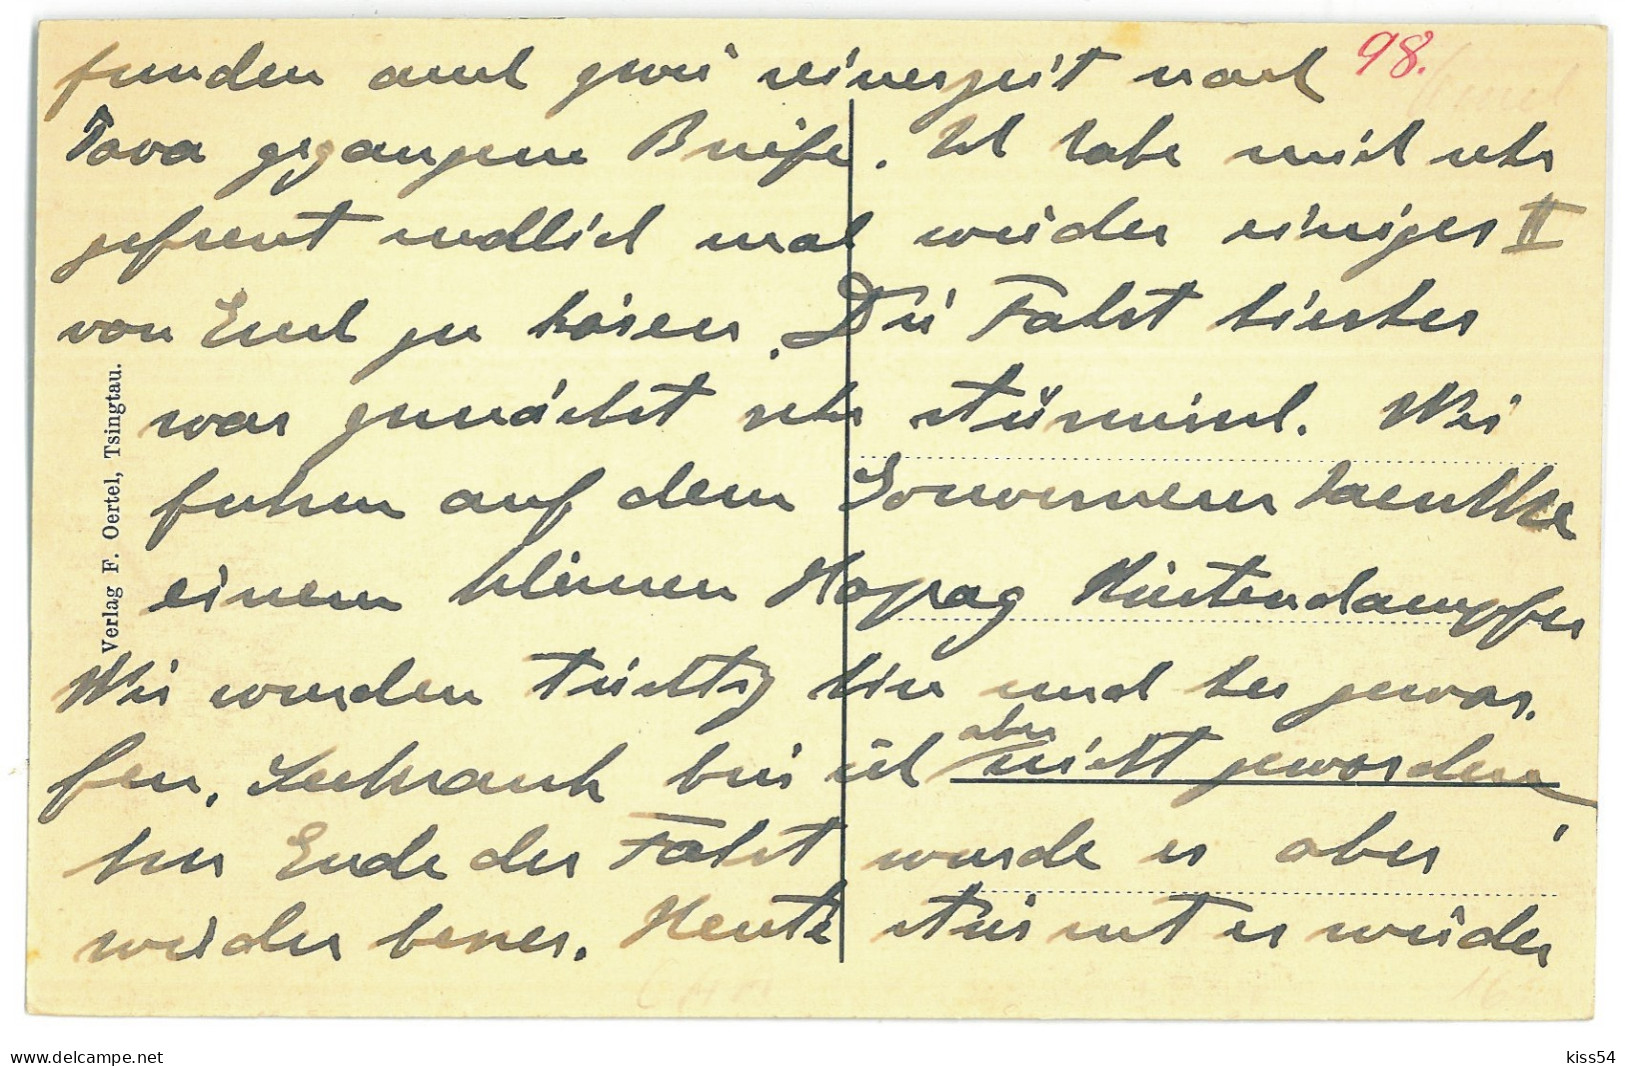 funden auch zwei seinerzeit nach 98.
Java gegangene Briefe. Ich habe mich sehr
gefreut endlich mal wieder einiges II
von Euch zu hören. Die Fahrt hierher
war zunächst sehr stürmisch. Wir
fuhren auf dem Gouverneur Jaeschke
einem kleinen Hapag Küstendampfer
Wir wurden tüchtig hin und her gewor-
fen. Seekrank bin ich aber nicht geworden
Ende der Fahrt wurde es aber
wieder besser. Heute stürmt es wieder
Verlag F. Oertel, Tsingtau.
delcampe.net
kiss54